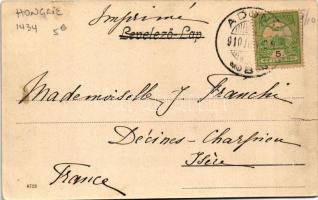 HONGRIE
1434 50
Imprimé
Levelező-Lap
ADO
910
5
Mademoiselle J Franchi
Décines-Charpieu
Isère
France
4725